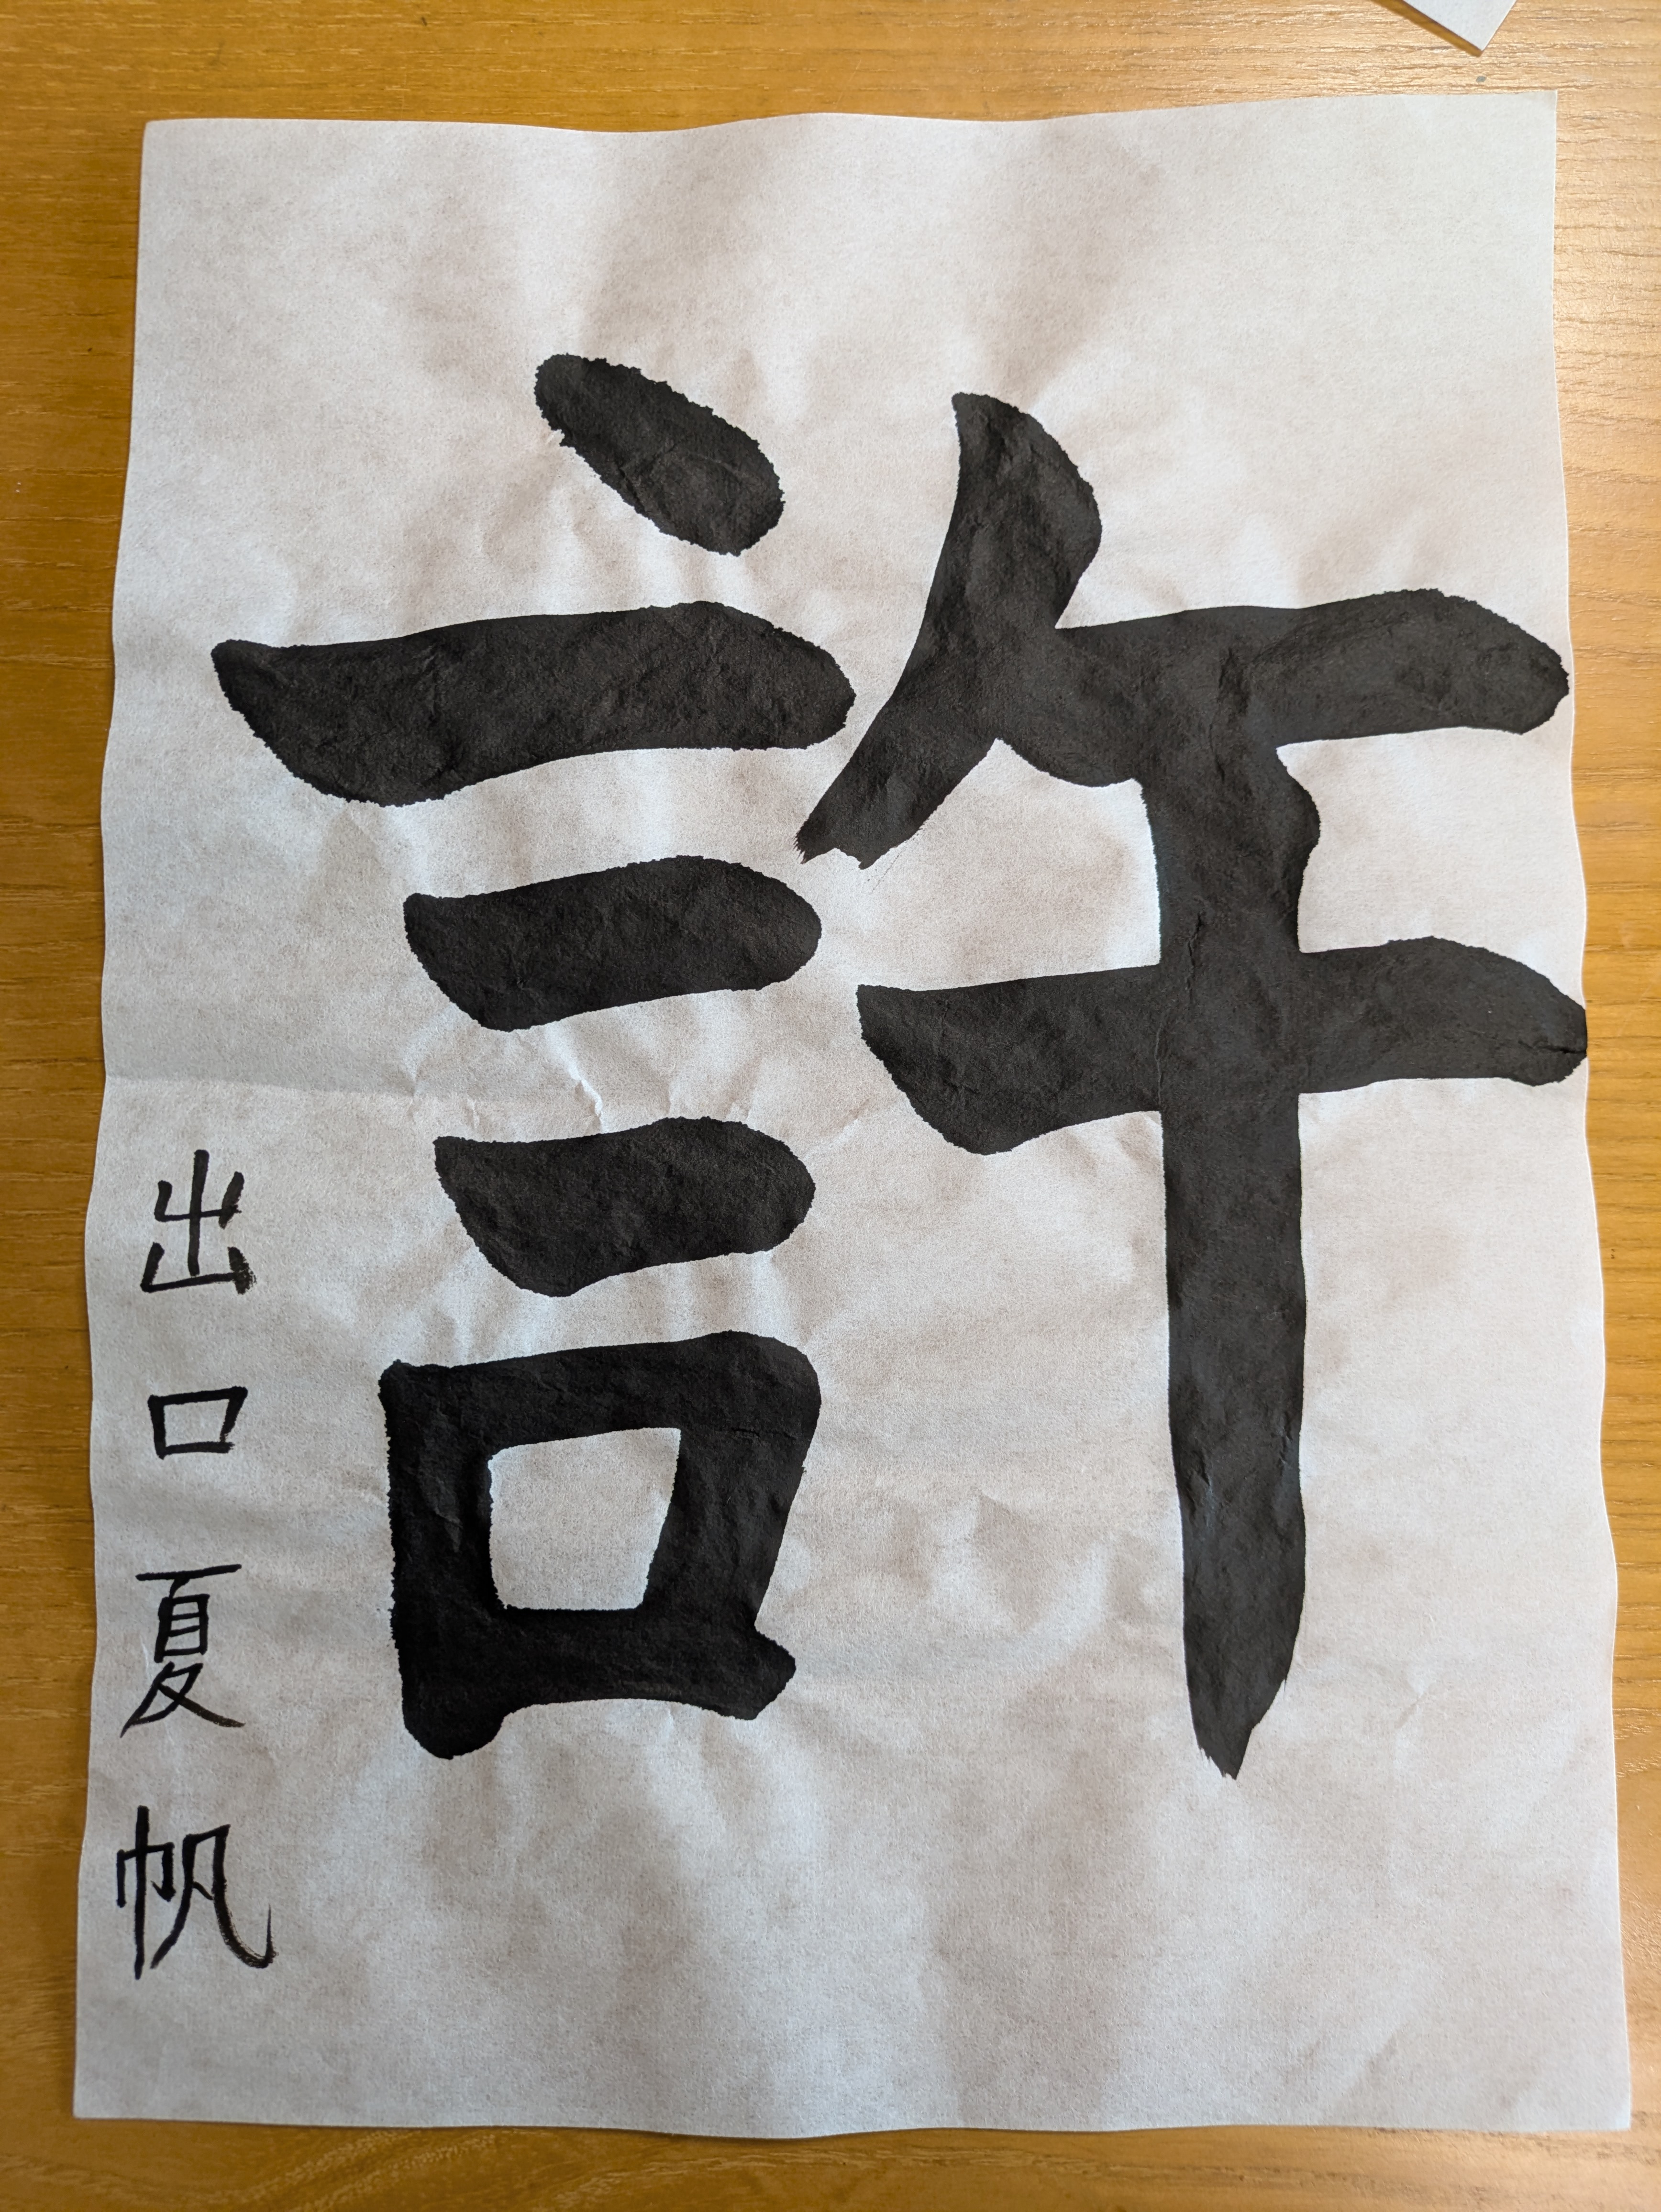 許
出口夏帆